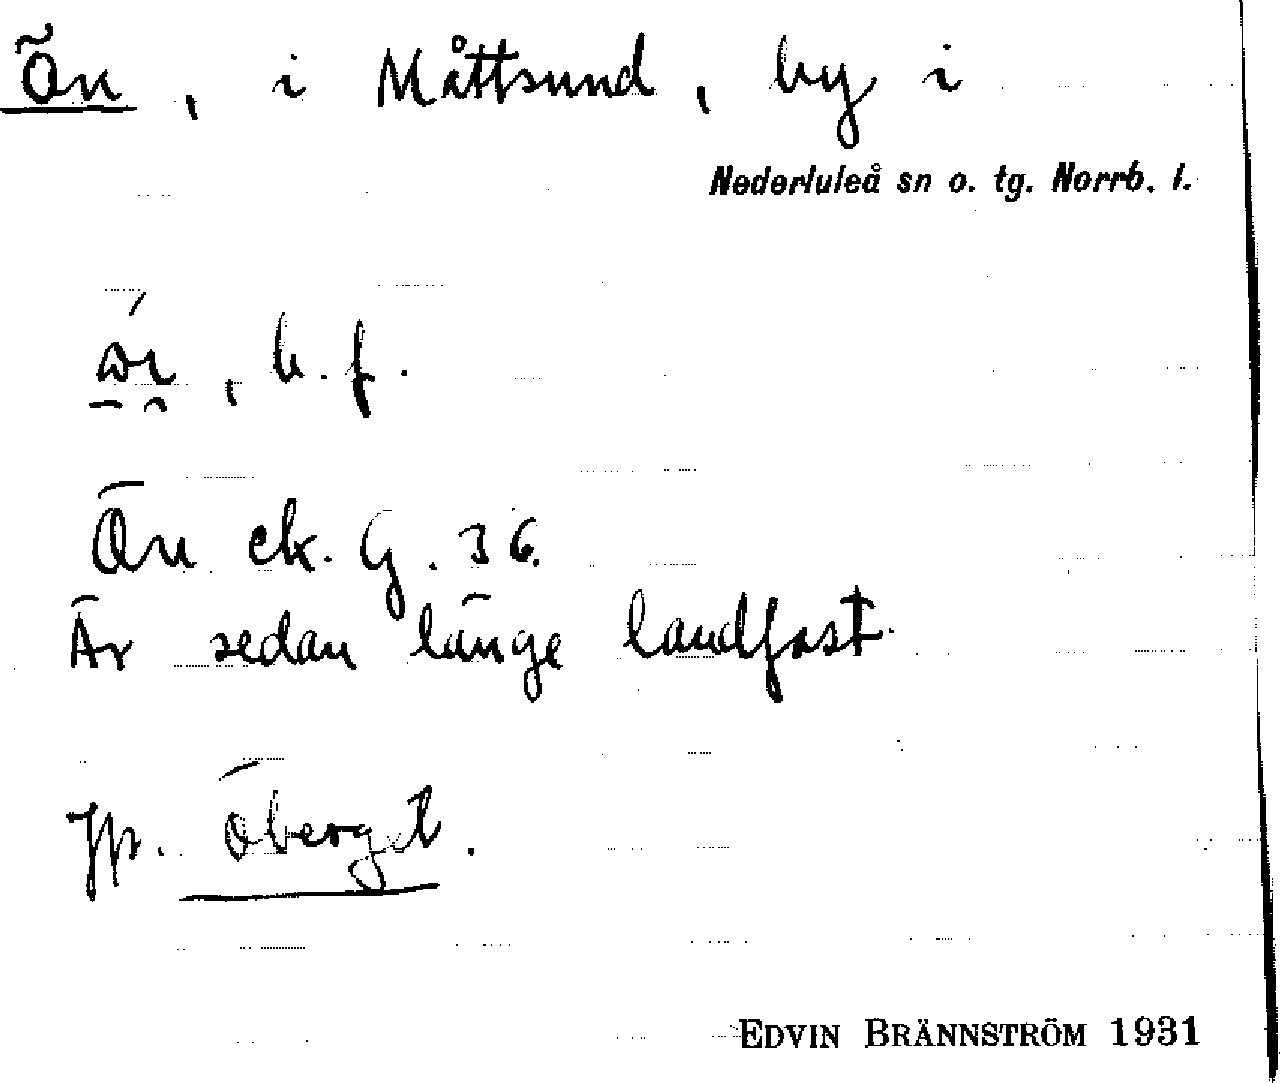 Ön, i Måttsund, by i
Nederluleå sn o. tg. Norrb. l.
, b. f.
Ön ek. G. 36.
Är sedan länge landfast.
Jfr. Öberget.
EDVIN BRÄNNSTRÖM 1931